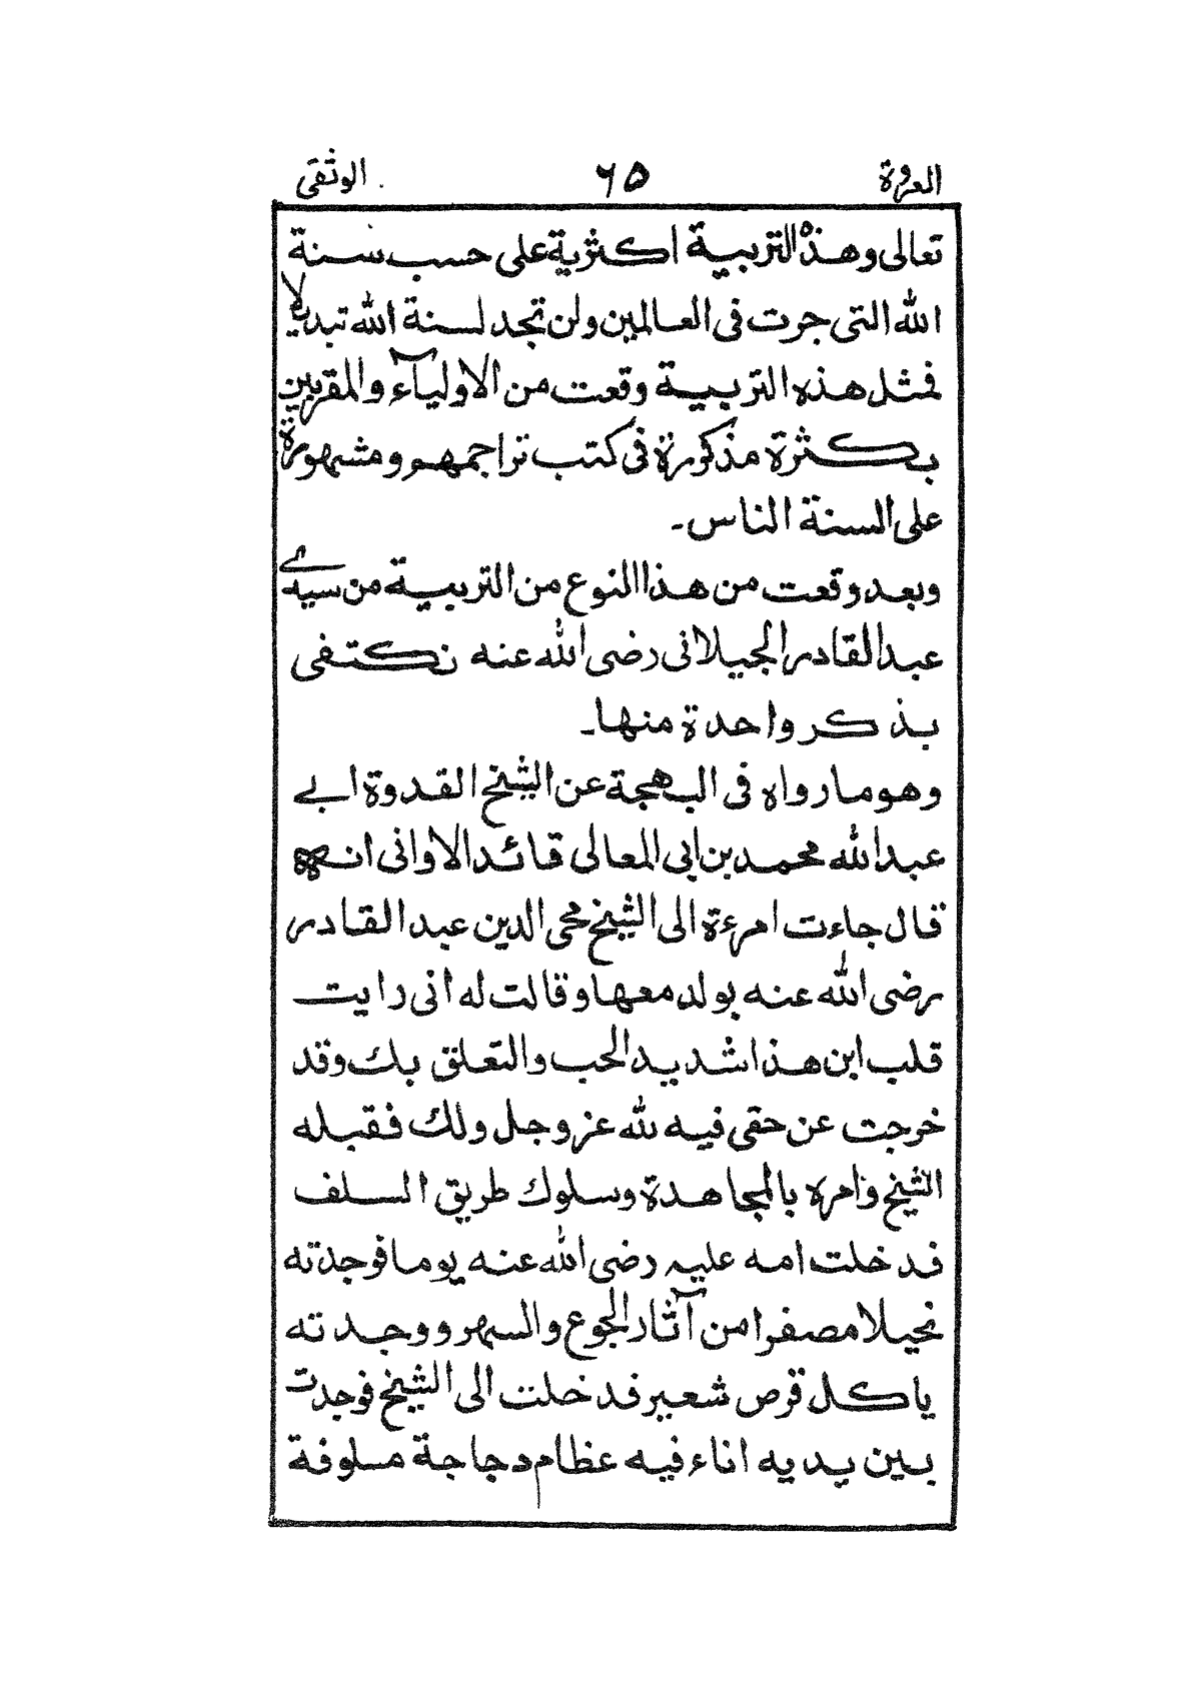 العروة ٦٥ الوثقى
تعالى وهذه التربية اكثرية على حسب سنة
الله التى جرت فى العالمين ولن تجد لسنة الله تبديلا
فمثل هذه التربية وقعت من الاولياء والمقربين
بكثرة مذكورة فى كتب تراجمهم ومشهورة
على السنة الناس۔
وبعد وقعت من هذا النوع من التربية من سيدے
عبد القادر الجيلانى رضى الله عنه نكتفى
بذكر واحدة منها۔
وهو ما رواه فى البهجة عن الشيخ القدوة ابے
عبد الله محمد بن ابى المعالى قائد الاوانى انه
قال جاءت امرءة الى الشيخ محى الدين عبد القادر
رضى الله عنه بولد معها وقالت له انى رايت
قلب ابن هذا شديد الحب والتعلق بك وقد
خرجت عن حقى فيه لله عز وجل ولك فقبله
الشيخ وامره بالمجاهدة وسلوك طريق السلف
فدخلت امه عليه رضى الله عنه يوما فوجدته
نحيلا مصفرا من آثار الجوع والسهر ووجدته
ياكل قرص شعير فدخلت الى الشيخ فوجدت
بين يديه اناء فيه عظام دجاجة مسلوقة